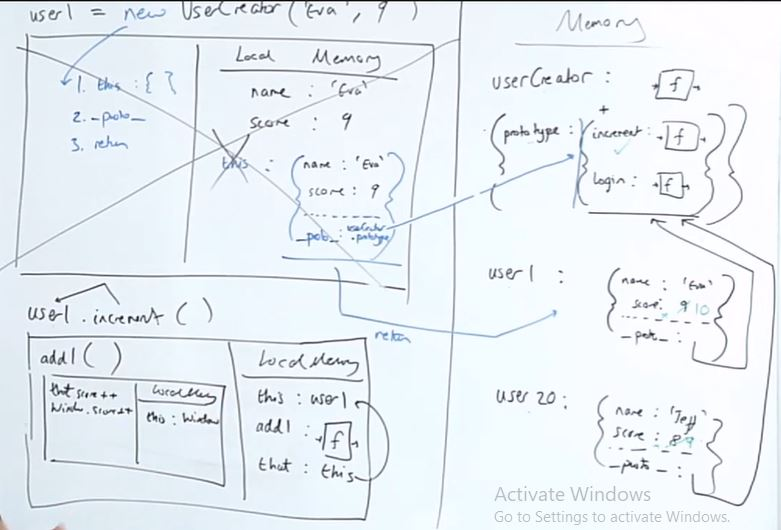 user1 = new UserCreator('Eva', 9)
Local Memory
1. this : { }
2. _proto_
3. return
name : 'Eva'
score : 9
this :
name : 'Eva'
score : 9
_proto_ : userCreator
.prototype
return
user1.increment ( )
add1 ( )
that.score++
Window.score++
Local Memory
this : Window
Local Memory
this : user1
add1 : f
that : this
Memory
userCreator : f
+
prototype :
increment : f
login : f
user1 :
name : 'Eva'
score : 9 10
_proto_ :
user 20 :
name : 'Jeff'
score : 8 9
_proto_ :
Activate Windows
Go to Settings to activate Windows.